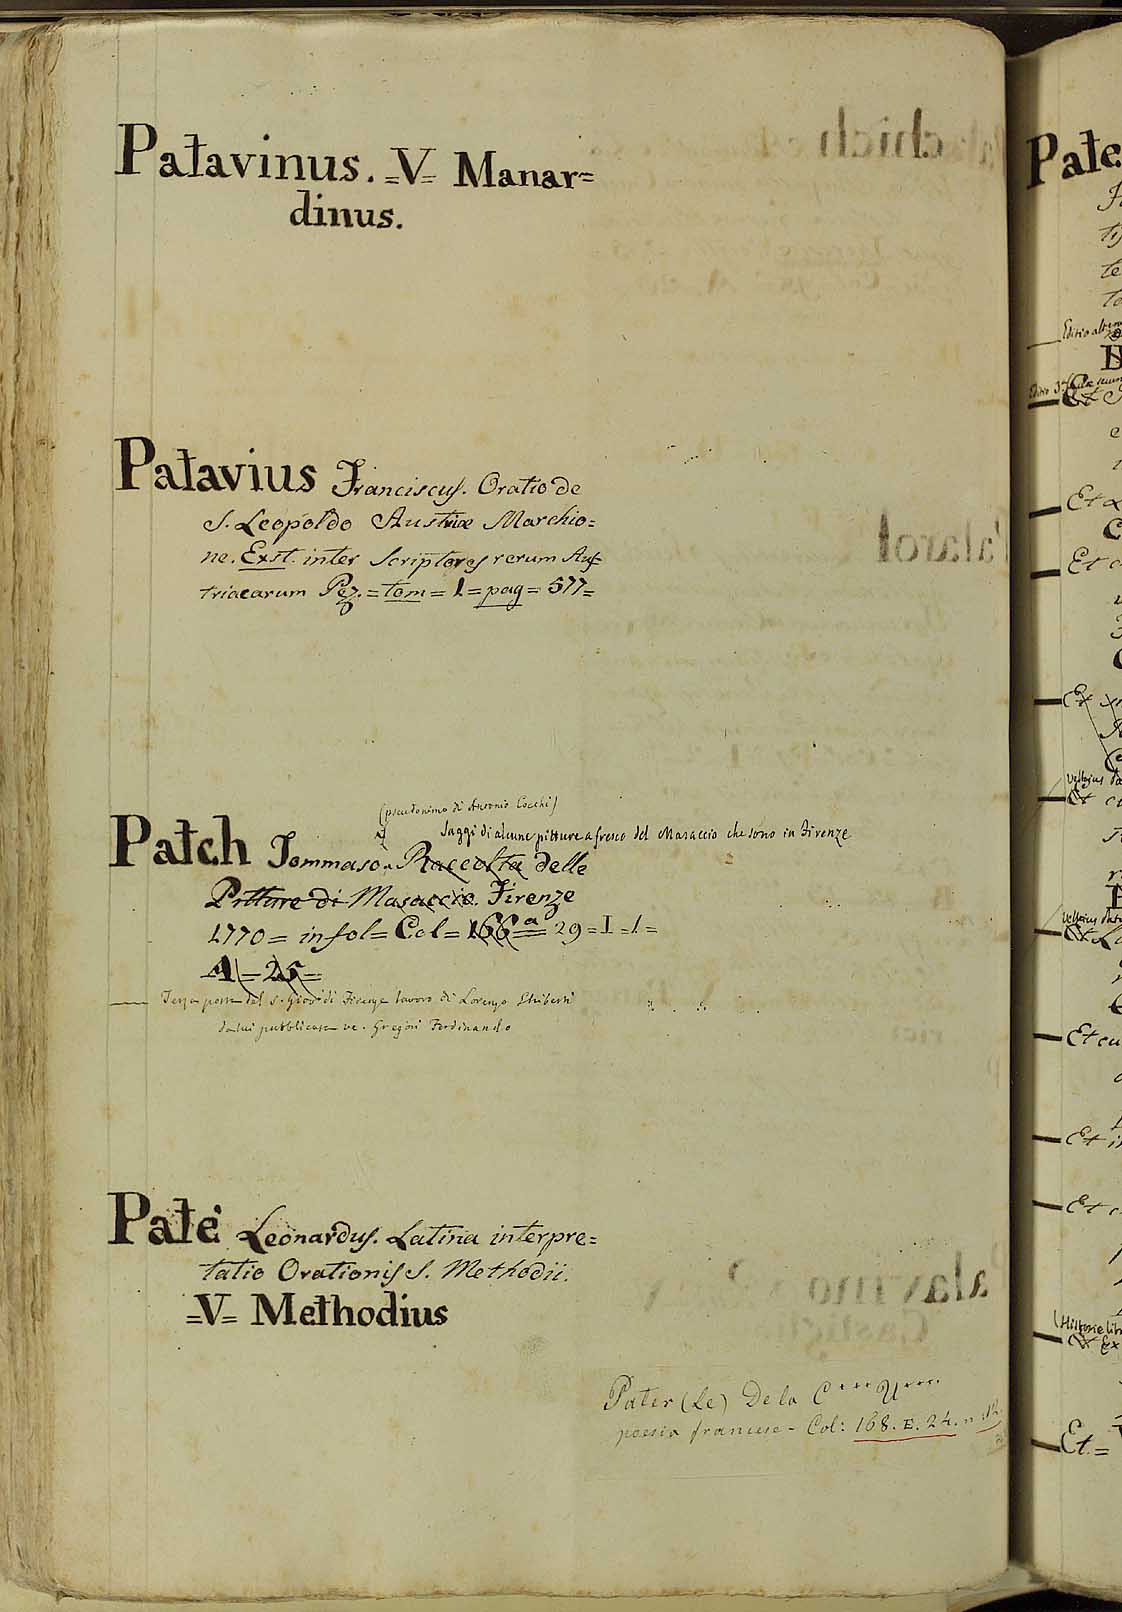 Patavinus. =V= Manar=
dinus.
Patavius Franciscus. Oratio de
S. Leopoldo Austriæ Marchio=
ne. Exst. inter Scriptores rerum Aus=
triacarum Pez. = tom = 1 = pag = 577=
(pseudonimo di Antonio Cocchi)
Saggi di alcune pitture a fresco del Masaccio che sono in Firenze
Patch Tommaso. Raccolta delle
Pitture di Masaccio. Firenze
1770 = in fol = Col = 166 a = 29 = I = 1 =
A = 25 =
Terza porta del S. Giov. di Firenze lavoro di Lorenzo Ghiberti
da lui pubblicata ve. Gregori Ferdinando
Paté Leonardus. Latina interpre=
tatio Orationis S. Methodii.
=V= Methodius
Pater (Le) De la C****
poesia francese - Col: 168. E. 24. n. 12
Pate
Et
Et
Et
Et cu
Et
Et
Et =